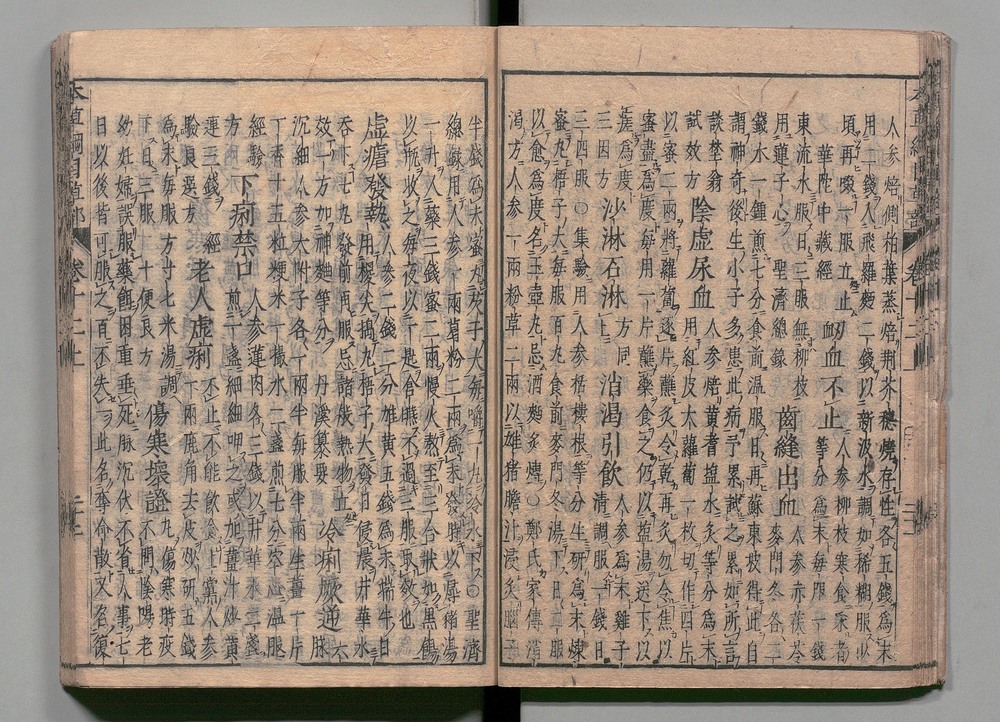 人參焙側柏葉蒸焙荆芥穗燒存性各五錢爲末
用二錢入飛羅麪二錢以新汲水調如稀糊服少
頃再啜一服立止 衂血不止 人參柳枝寒食采者
華陀中藏經 等分爲末每服一錢
東流水服日三服無柳枝 齒縫出血 人參赤茯苓
用蓮子心 聖濟總錄 麥門冬各二
錢水一鍾煎七分食前温服日再蘇東坡得此自
謂神奇後生小子多患此病予累試之累如所言
談埜翁 陰虚尿血 人參焙黄耆鹽水炙等分爲末
試效方 用紅皮大蘿蔔一枚切作四片
以蜜二兩將蘿蔔逐片蘸炙令乾再炙勿令焦以
蜜盡爲度每用一片蘸藥食之仍以鹽湯送下以
瘥爲度 沙淋石淋 方同上 消渴引飲 人參爲末雞子
三因方 清調服一錢日
三四服○集驗用人參栝樓根等分生研爲末煉
蜜丸梧子大每服百丸食前麥門冬湯下日二服
以愈爲度名玉壺丸忌酒麪炙煿○鄭氏家傳消
渴方人參一兩粉草二兩以雄猪膽汁浸炙腦子
半錢爲末蜜丸芡子大每嚼一丸冷水下○聖濟
總錄用人參一兩葛粉二兩爲末發時以㷟猪湯
一升入藥三錢蜜二兩慢火熬至三合狀如黑餳
以瓶收之每夜以一匙含嚥不過三服取效也
虚瘧發熱 人參二錢二分雄黄五錢爲末端午日
用糭尖搗丸梧子大發日侵晨井華水
吞下七丸發前再服忌諸般熱物立 冷痢厥逆 六脉
效一方加神麴等分 丹溪纂要
沉細人參大附子各一兩半每服半兩生薑十片
丁香十五粒粳米一撮水二盞煎七分空心温服
經驗方 下痢禁口 人參蓮肉各三錢以井華水二盞
煎一盞細細呷之或加薑汁炒黄
連三錢 經驗良方 老人虚痢 不止不能飲食上黨人參
一兩鹿角去皮炒研五錢
爲末每服方寸匕米湯調
下日三服 十便良方 傷寒壞證 凡傷寒時疫
不問陰陽老
幼妊婦誤服藥餌困重垂死脉沉伏不省人事七
日以後皆可服之百不失一此名奪命散又名復